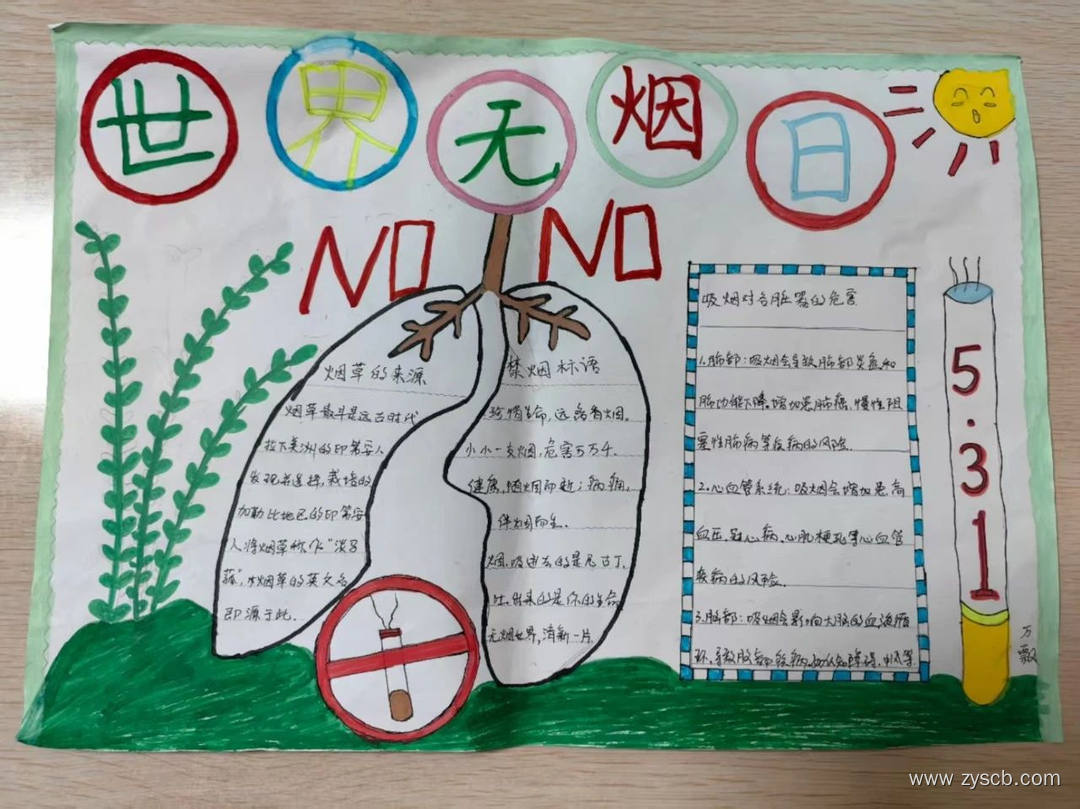 世界无烟日
NO NO
烟草的来源
烟草最早是远古时代
拉下美洲的印第安人
发现并选择,栽培的
加勒比地区的印第安
人将烟草称作“淡
,
烟草的英文名
即源于此.
禁烟标语
珍惜生命,远离香烟.
小小一支烟,危害万万千.
健康,随烟而逝;病痛,
伴烟而生.
烟,吸进去的是尼古丁,
吐出来的是你的生命
无烟世界,清新一片.
吸烟对各脏器的危害
1.肺部:吸烟会导致肺部炎症和
肺功能下降,增加患肺癌,慢性阻
塞性肺病等疾病的风险.
2.心血管系统:吸烟会增加患高
血压,冠心病,心肌梗死等心血管
疾病的风险.
3.脑部:吸烟会影响大脑的血液循
环,导致脑部疾病,如认知障碍,中风等
5.31
万
www.zyscb.com